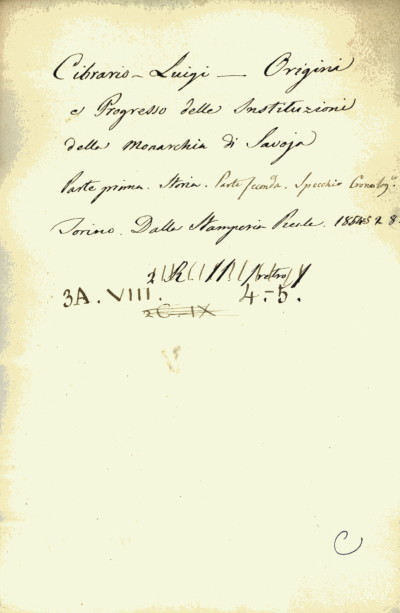 Cibrario - Luigi — Origini
e Progresso delle Instituzioni
della Monarchia di Savoja
Parte prima. Storia. Parte seconda. Specchio Cronolog.º
Torino. Dalla Stamperia Reale.
(retro)
3A. VIII. 4-5.
2C. IX
C